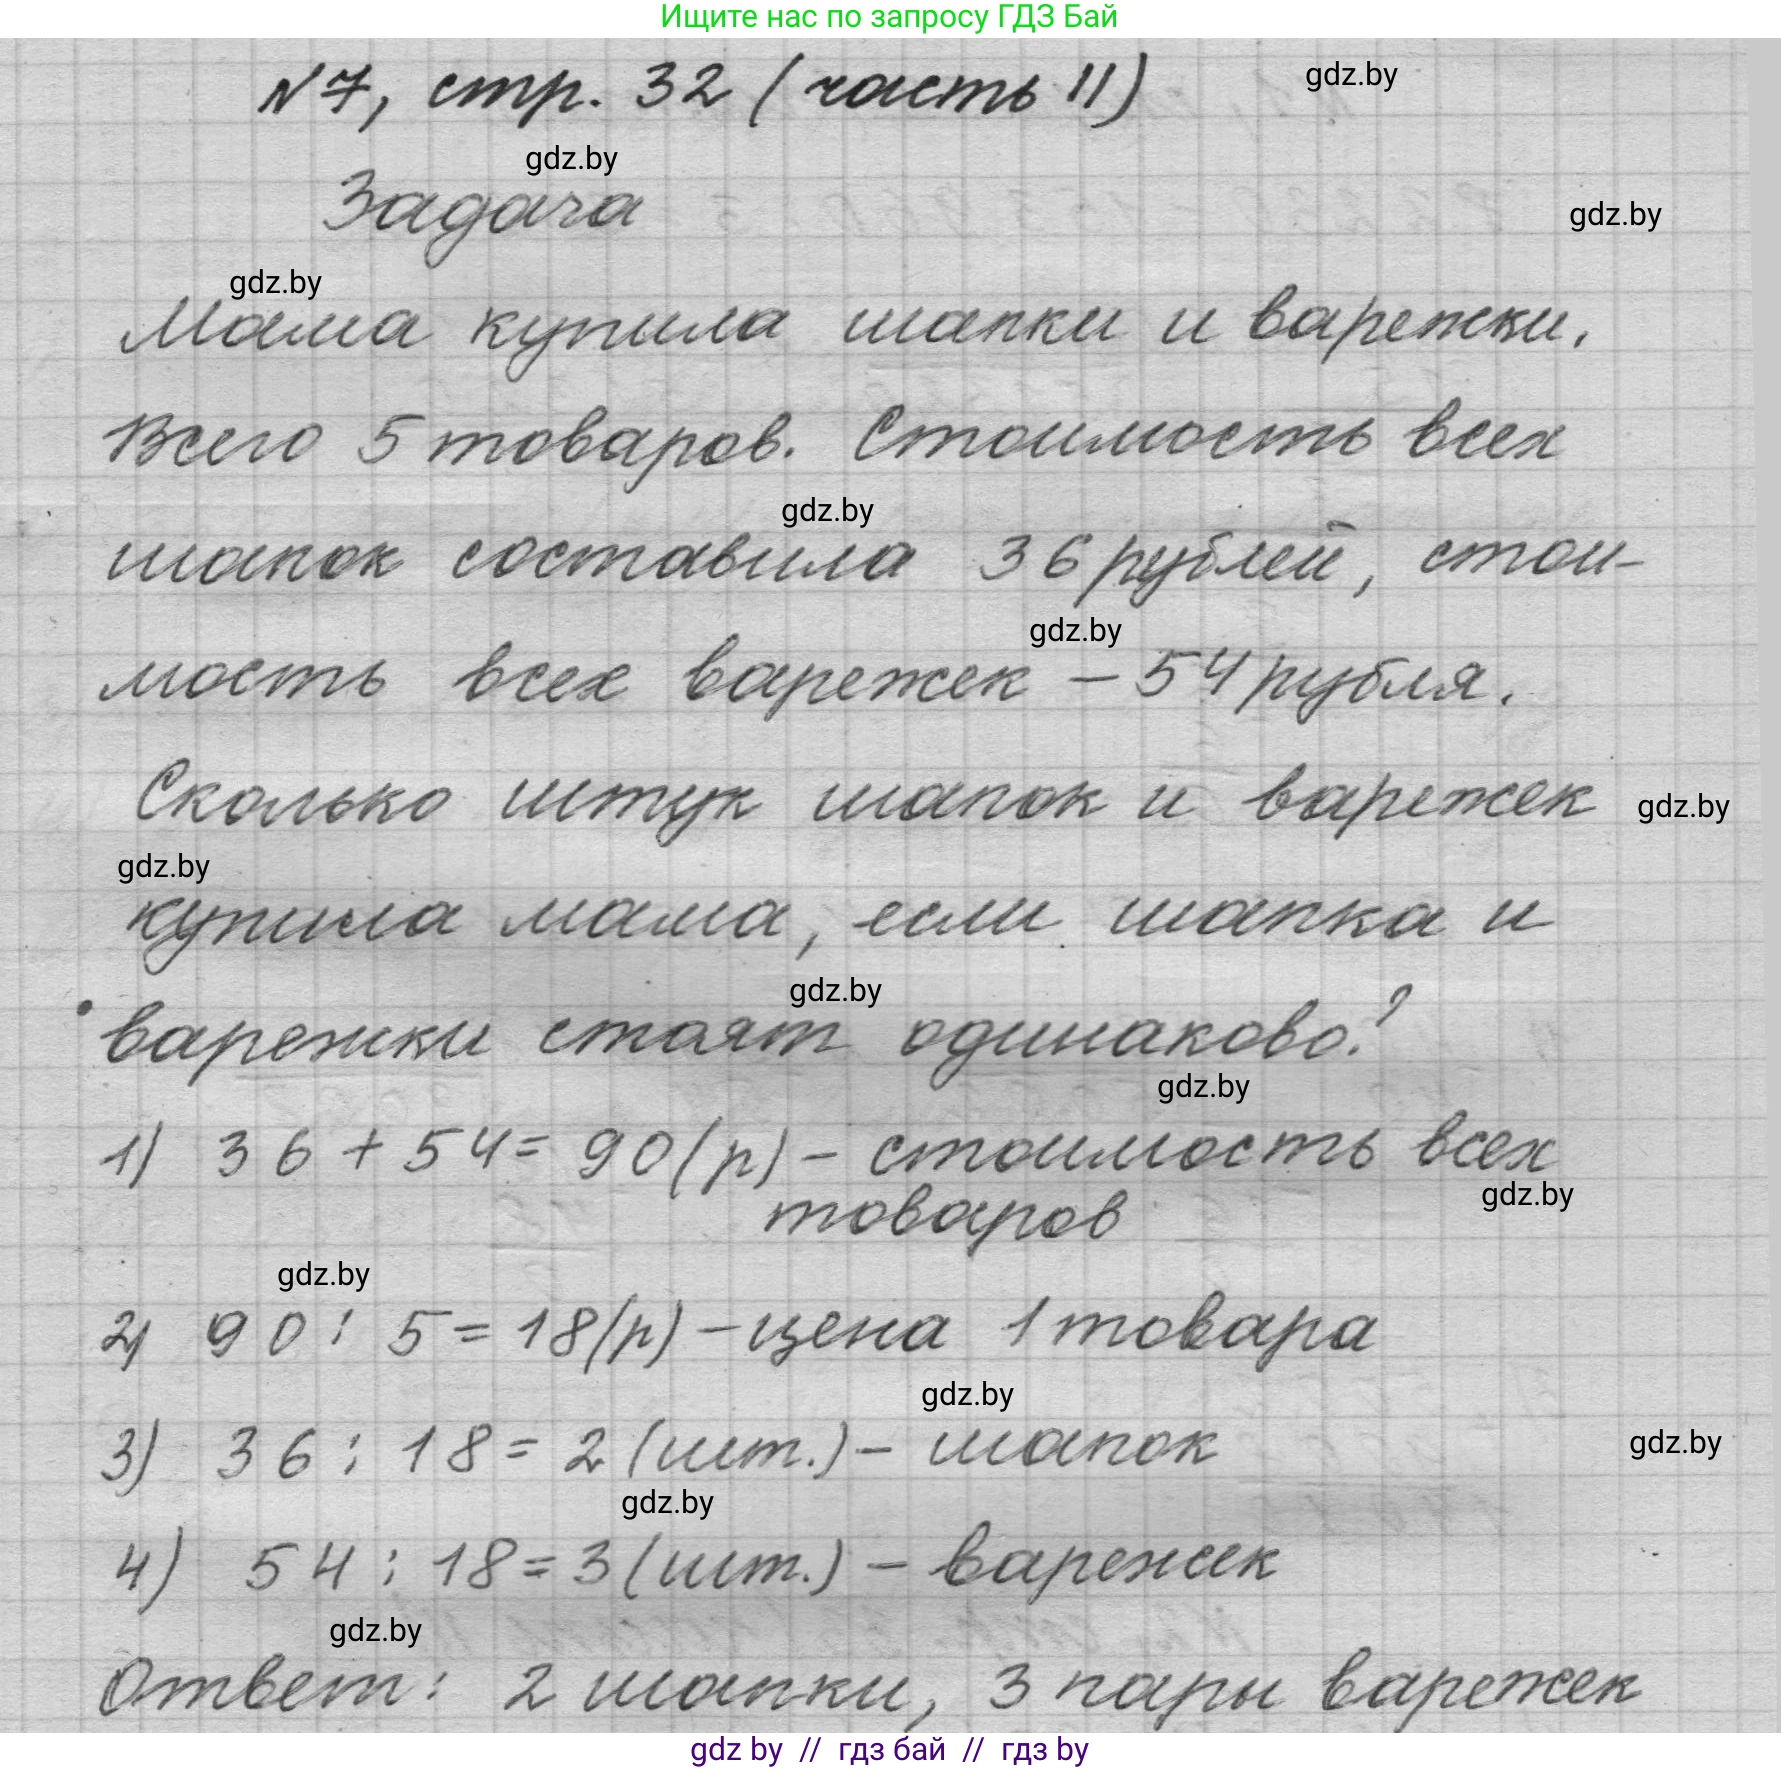 Ищите нас по запросу ГДЗ Бай
№7, стр. 32 (часть II)
gdz.by
gdz.by
Задача
gdz.by
gdz.by
Мама купила шапки и варежки.
Всего 5 товаров. Стоимость всех
gdz.by
шапок составила 36 рублей, стои-
gdz.by
мость всех варежек – 54 рубля.
Сколько штук шапок и варежек
gdz.by
gdz.by
купила мама, если шапка и
gdz.by
варежки стоят одинаково?
gdz.by
1) 36 + 54 = 90 (р) – стоимость всех
gdz.by
товаров
gdz.by
2) 90 : 5 = 18 (р) – цена 1 товара
gdz.by
3) 36 : 18 = 2 (шт.) – шапок
gdz.by
gdz.by
4) 54 : 18 = 3 (шт.) – варежек
gdz.by
Ответ: 2 шапки, 3 пары варежек
gdz by // гдз бай // гдз by